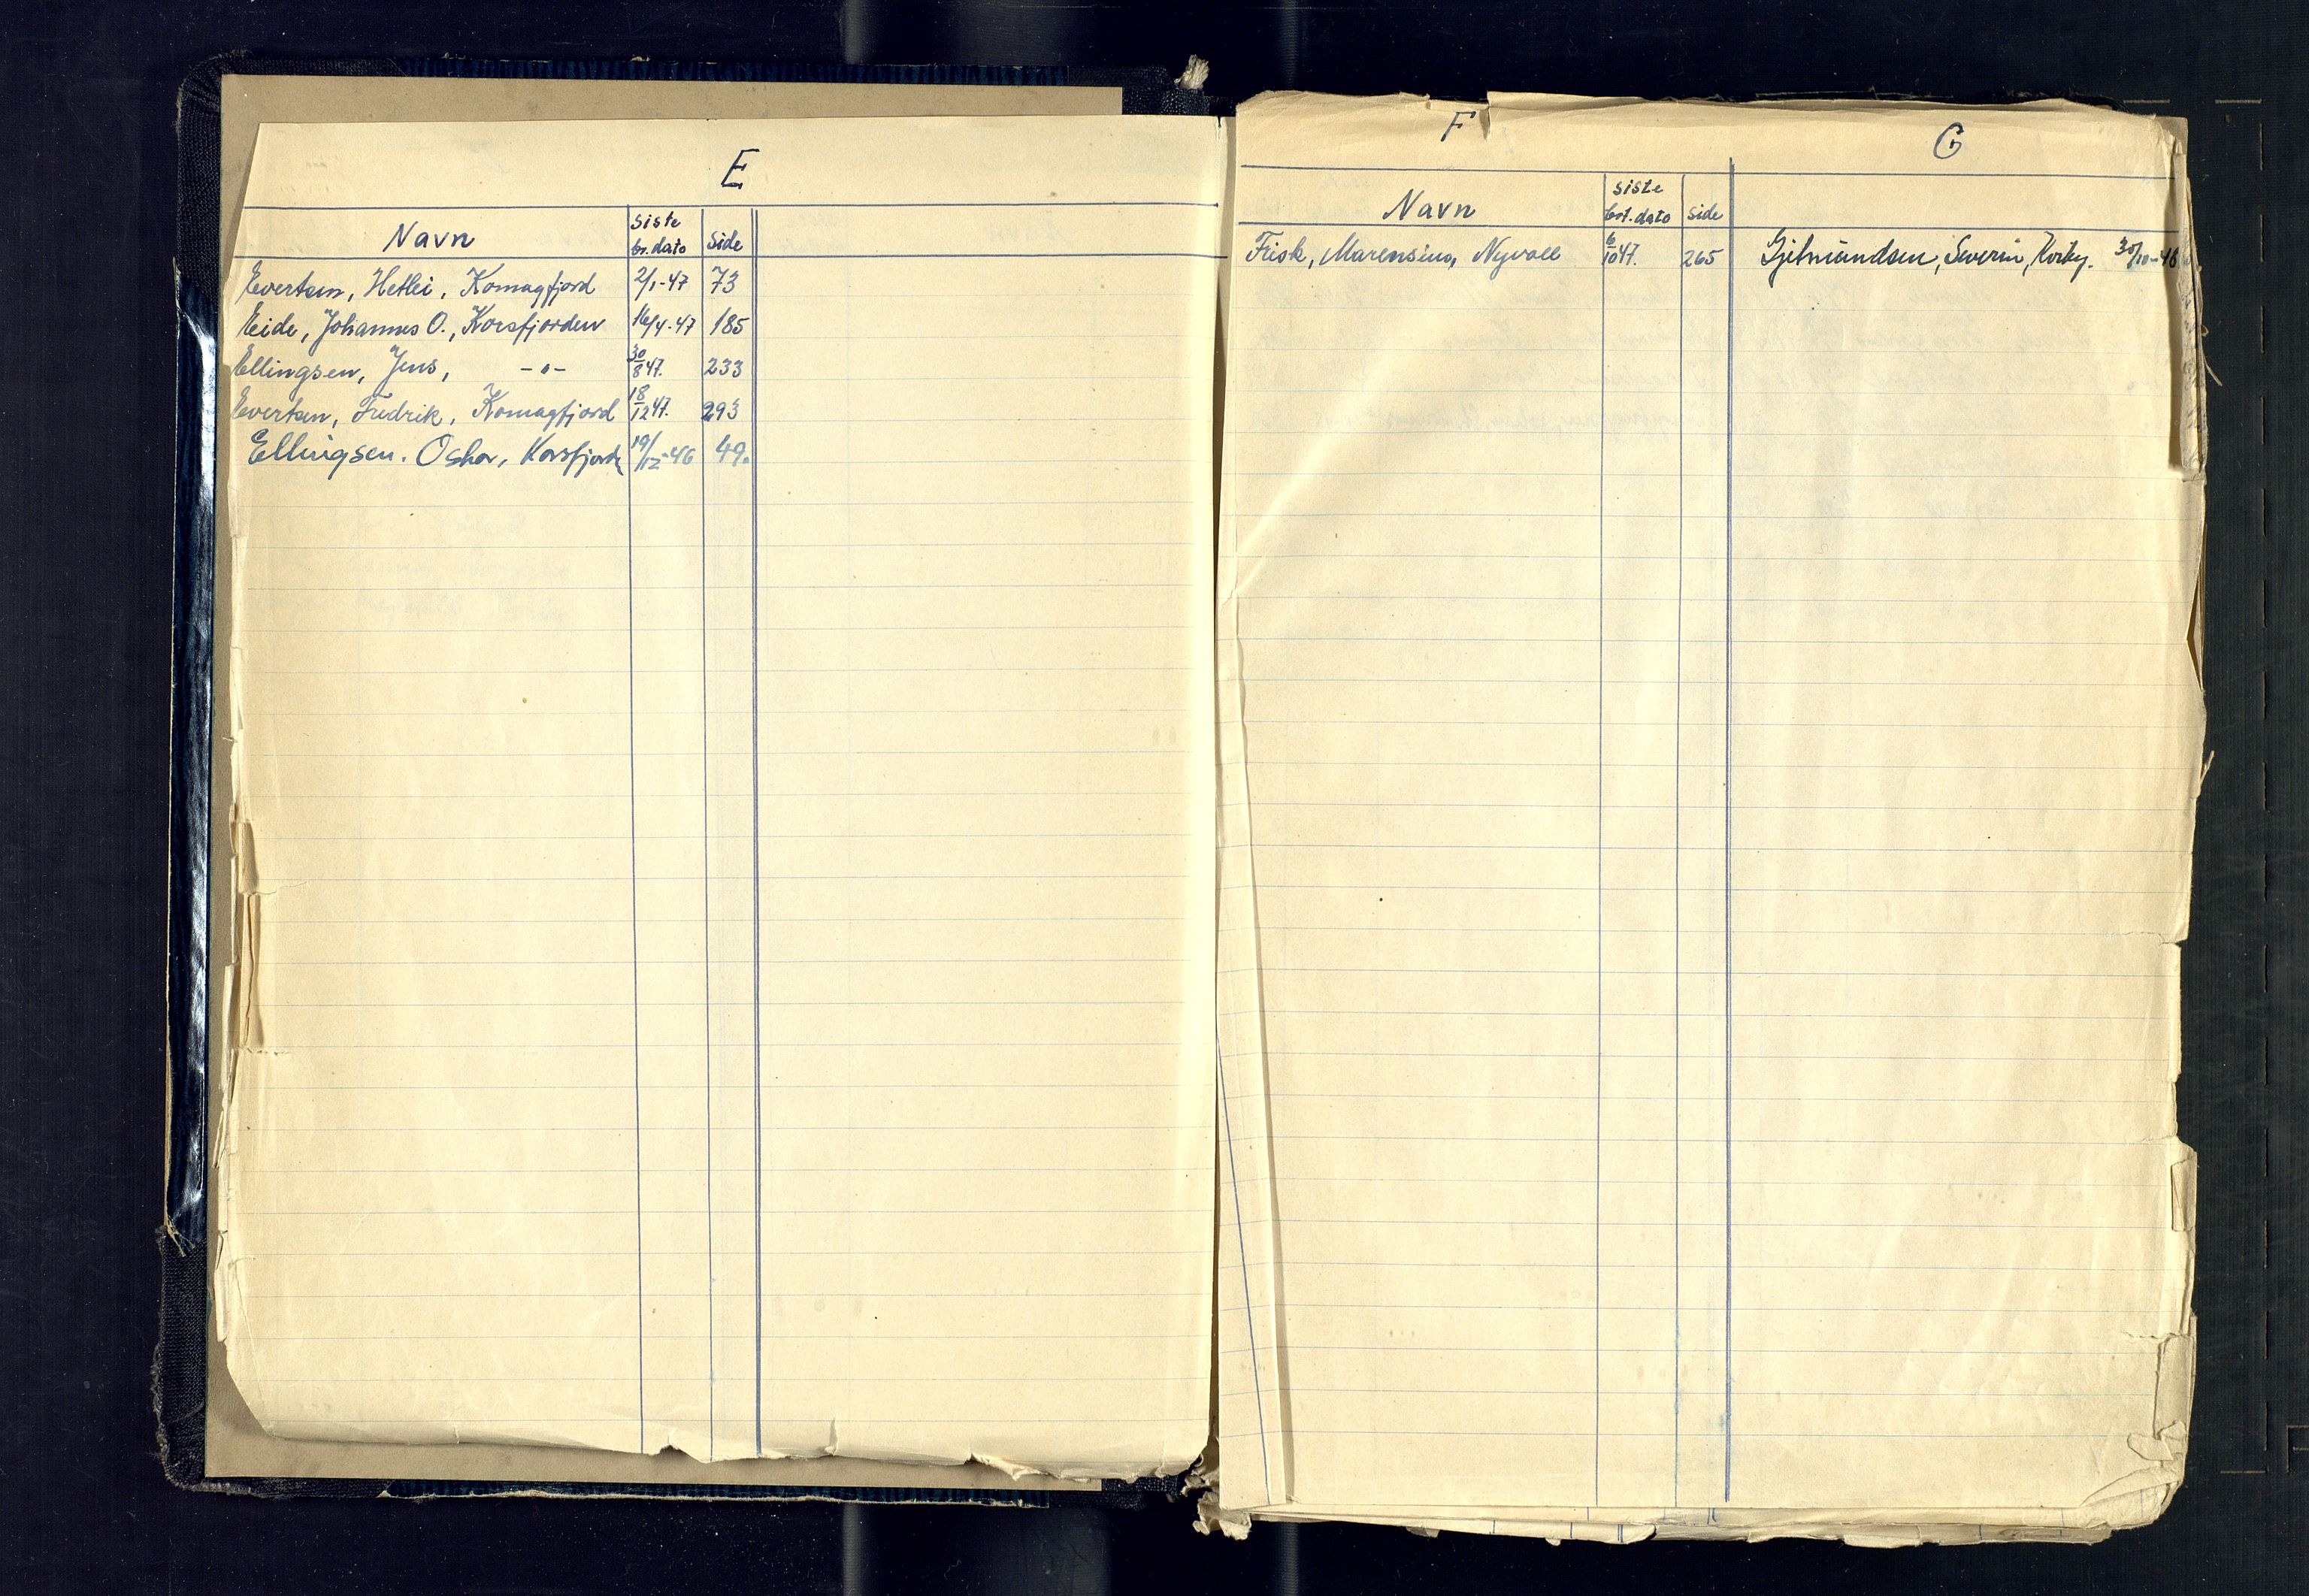 E
Navn siste br.dato side
Evertsen, Hetlei, Komagfjord 2/1-47 73
Eide, Johannes O., Korsfjorden 16/4-47 185
Ellingsen, Jens, -"- 30/8 47. 233
Evertsen, Fredrik, Komagfjord 18/12 47. 293
Ellingsen. Oskar, Korsfjord 19/12-46 49.
F
Navn siste brt.dato side
Frisk, Marensius, Nyvoll 6/10 47. 265
G
Gjetmundsen, Severin, 30/10-46